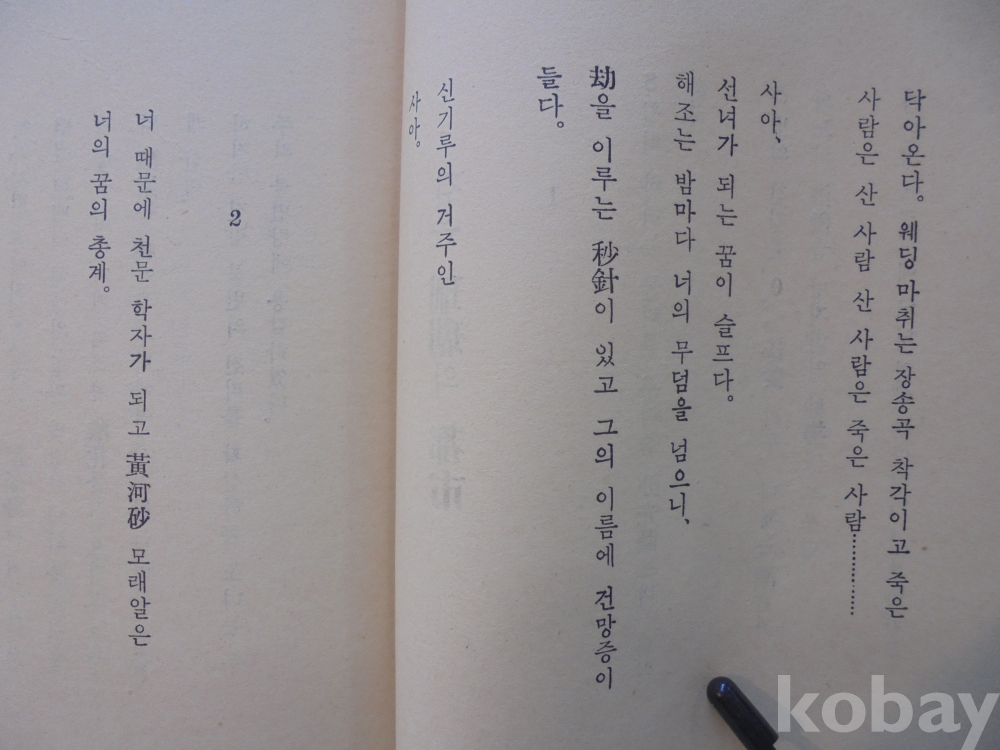 닥아온다。 웨딩 마취는 장송곡 착각이고 죽은
사람은 산 사람 산 사람은 죽은 사람…………
사아、
선녀가 되는 꿈이 슬프다。
해조는 밤마다 너의 무덤을 넘으니、
劫을 이루는 秒針이 있고 그의 이름에 건망증이
들다。
신기루의 거주인
사아。
2
너 때문에 천문 학자가 되고 黃河砂 모래알은
너의 꿈의 총계。
kobay